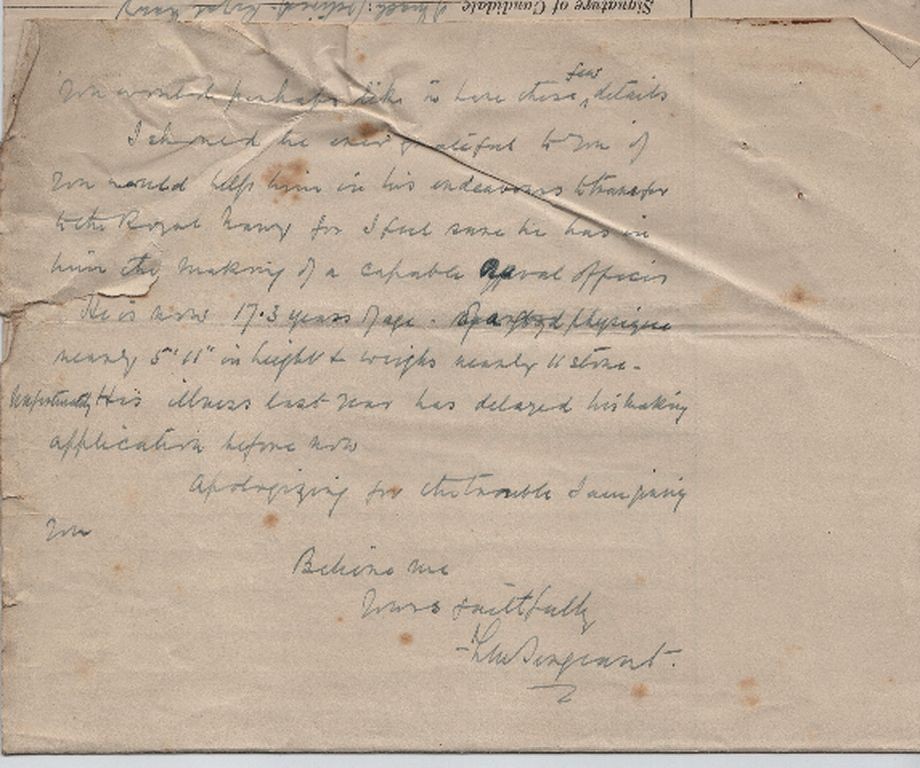 Signature of Candidate
You would perhaps like to have these few details
I should be ever grateful to you if
you would help him in his endeavours to transfer
to the Royal Navy for I feel sure he has in
him the making of a capable Naval officer
He is now 17.3 years of age. Of a good physique
nearly 5' 11" in height & weighs nearly 11 stone.
Unfortunately His illness last year has delayed his making
application before now
Apologizing for the trouble I am giving
you
Believe me
Yours faithfully
Sergeant.